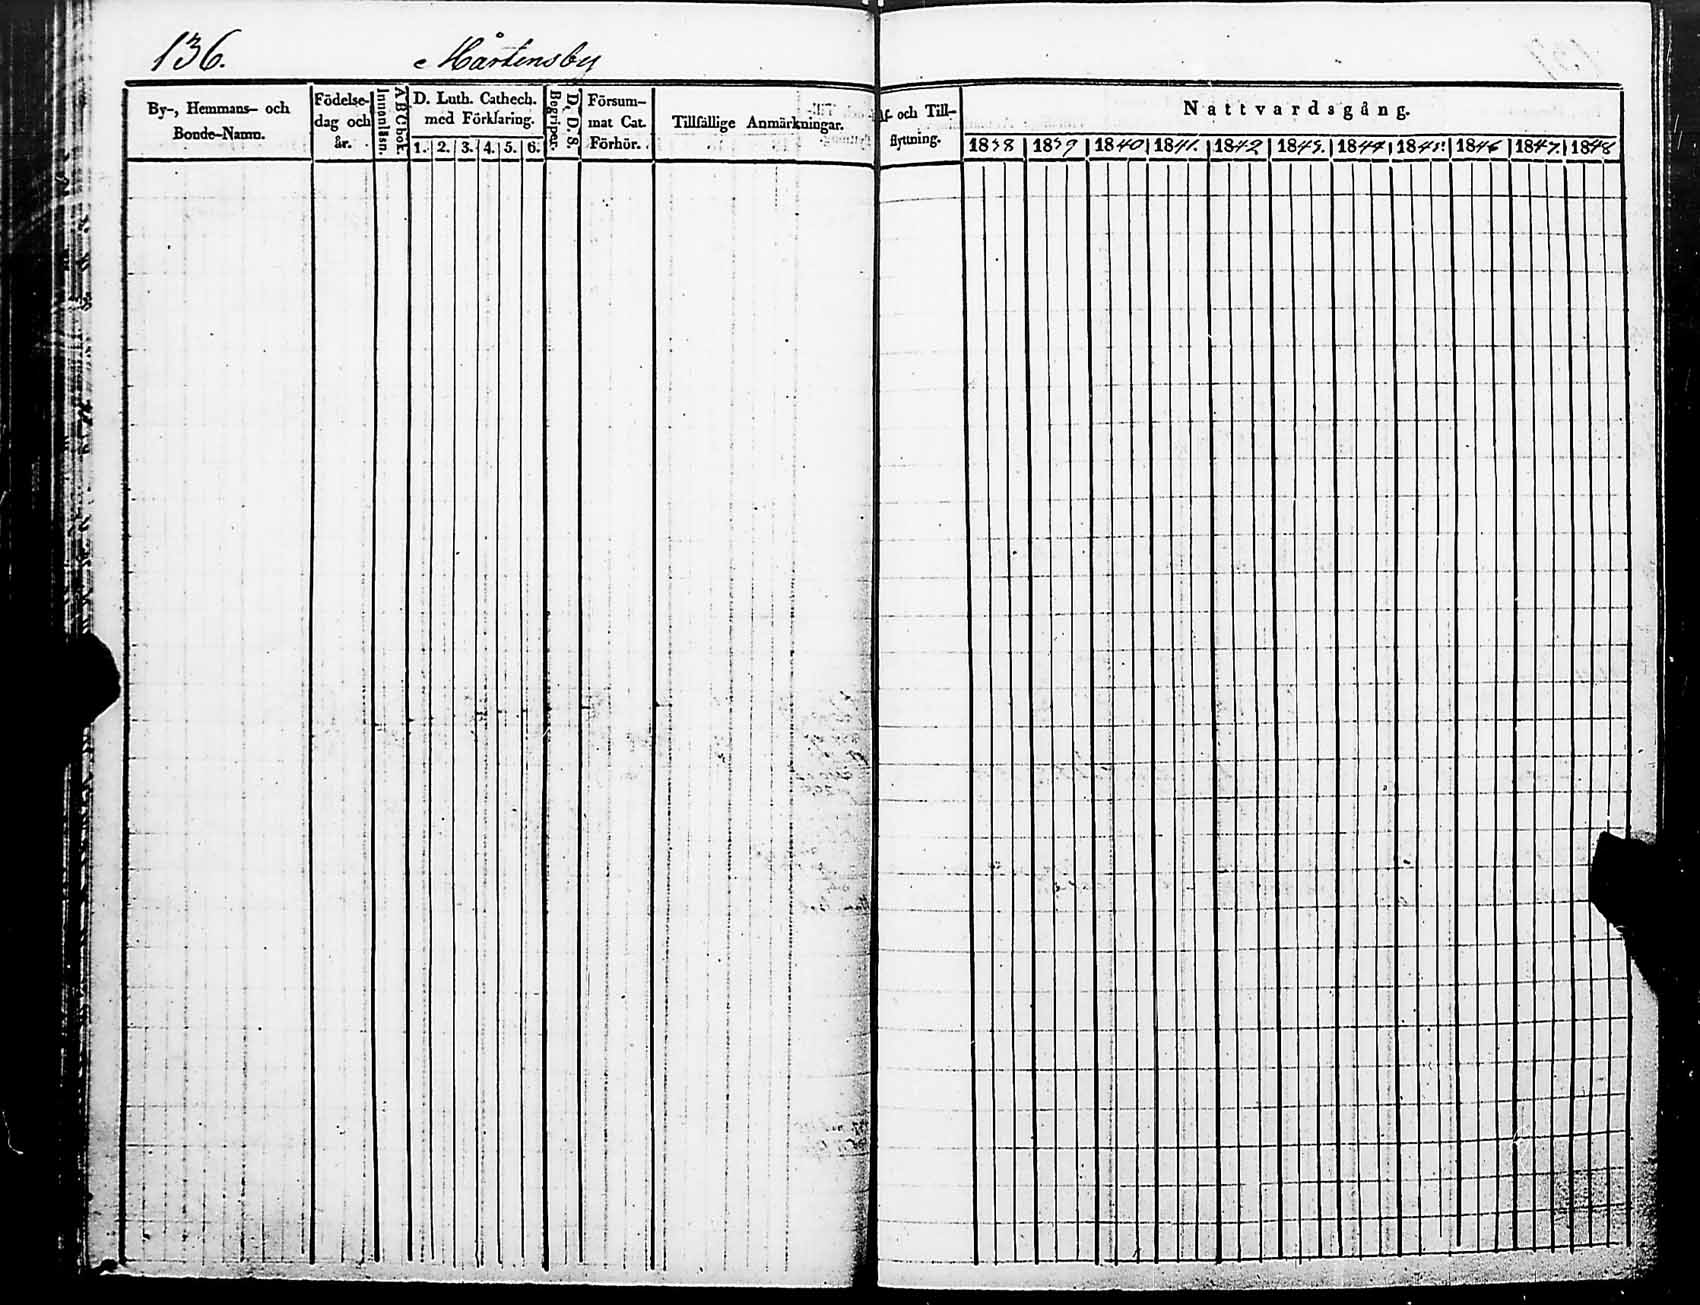 136. Mårtensby
By-, Hemmans- och
Bonde-Namn.
Födelse-
dag och
år.
A B C bok.
Innanläsn.
D. Luth. Cathech.
med Förklaring.
1. 2. 3. 4. 5. 6.
D. D. S.
Begriper.
Försum-
mat Cat.
Förhör.
Tillfällige Anmärkningar.
Af- och Till-
flyttning.
Nattvardsgång.
1838 1839 1840 1841. 1842 1843. 1844 1845. 1846 1847. 1848